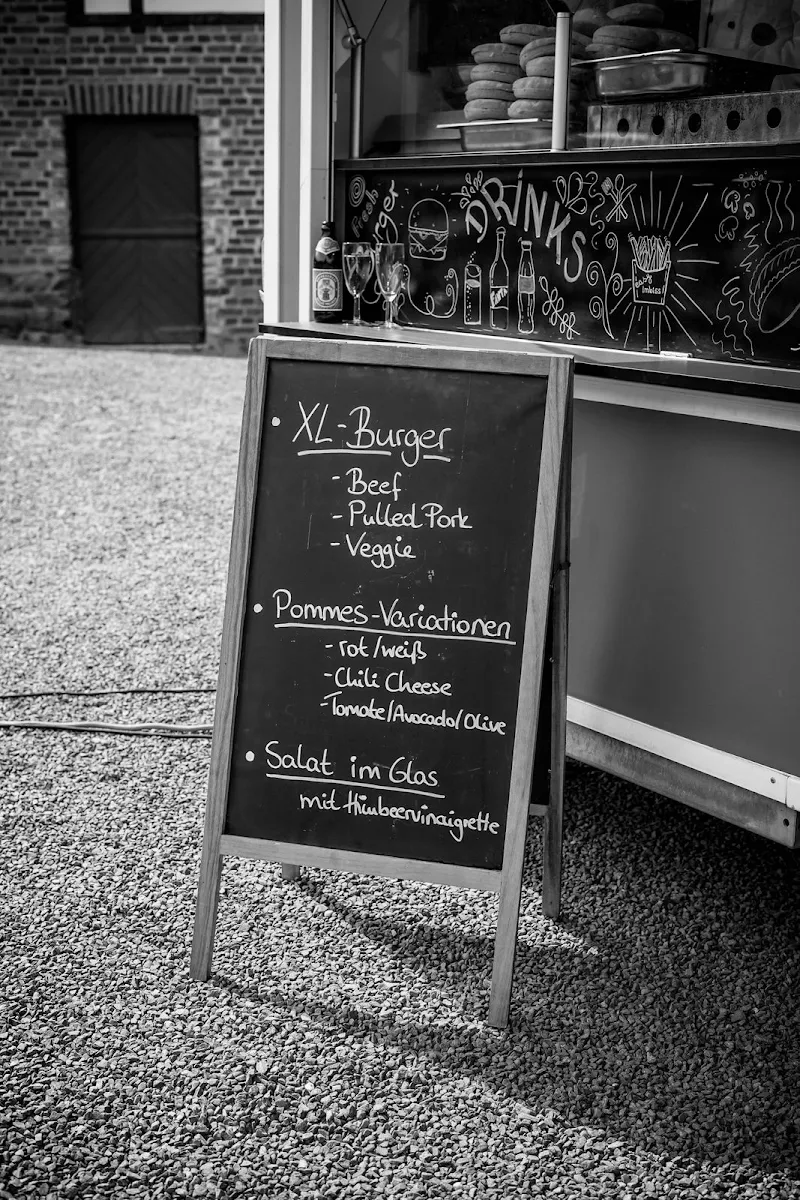 Fresh
Burger
DRINKS
Fanta
XL-Burger
- Beef
- Pulled Pork
- Veggie
Pommes-Variationen
- rot/weiß
- Chili Cheese
- Tomate/Avocado/Olive
Salat im Glas
mit Himbeervinaigrette